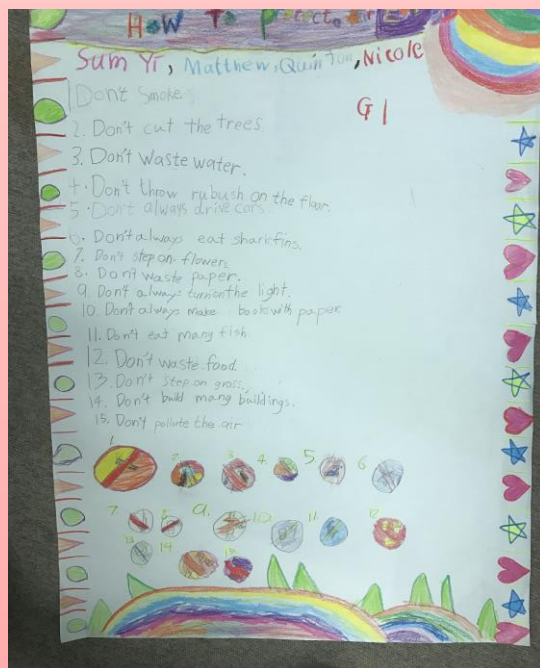 How To Protect
Sum Yi, Matthew, Quinton, Nicole
G1
1 Don't Smoke
2. Don't cut the trees
3. Don't waste water.
4. Don't throw rubush on the floor.
5. Don't always drive cars.
6. Don't always eat sharkfins.
7. Don't step on flowers
8. Don't waste paper.
9. Don't always turn on the light.
10. Don't always make books with paper
11. Don't eat many fish
12. Don't waste food.
13. Don't step on grass.
14. Don't build many buildings.
15. Don't pollute the air
1.
2.
3.
4.
5.
6
7.
8.
9.
10.
11.
12
13
14
15